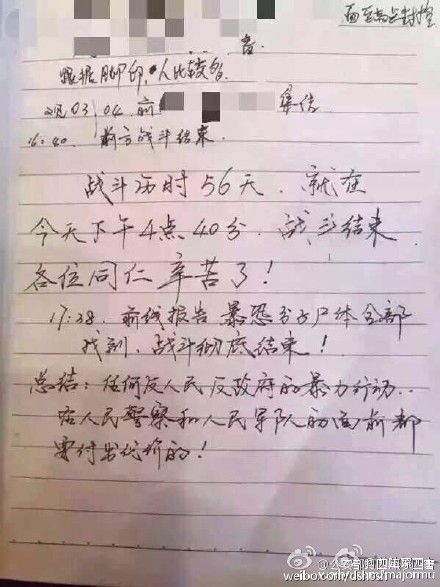 面至高点封控
者.
跟据脚印 人比较多.
03 04 前 集结
16:40. 前方战斗结束.
战斗历时56天.就在
今天下午4点40分.战斗结束.
各位同仁辛苦了!
17:38.前线报告暴恐分子尸体全部
找到.战斗彻底结束!
总结:任何反人民反政府的暴力行动..
在人民警察和人民军队的面前都
要付出代价的!
weibo.com/dshps/majormu